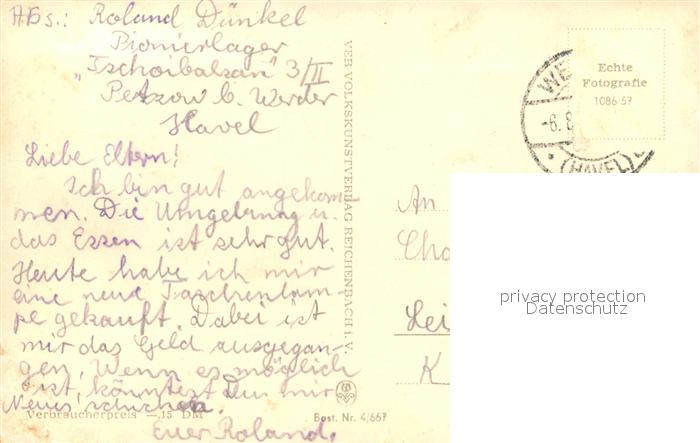 Abs.: Roland Dünkel
Pionierlager
„Tschoibalsan" 3/II
Petzow b. Werder
Havel
Liebe Eltern!
Ich bin gut angekom-
men. Die Umgebung u.
das Essen ist sehr gut.
Heute habe ich mir
eine neue Taschenlam-
pe gekauft. Dabei ist
mir das Geld ausgegan-
gen. Wenn es möglich
ist, könntest Du mir
Neues schicken.
Euer Roland.
Verbraucherpreis —,15 DM
Best. Nr. 4/667
VEB VOLKSKUNSTVERLAG REICHENBACH I. V.
WE
-6.8
(HAVEL)
Echte
Fotografie
1086 57
An
Cha
Lei
K
privacy protection
Datenschutz